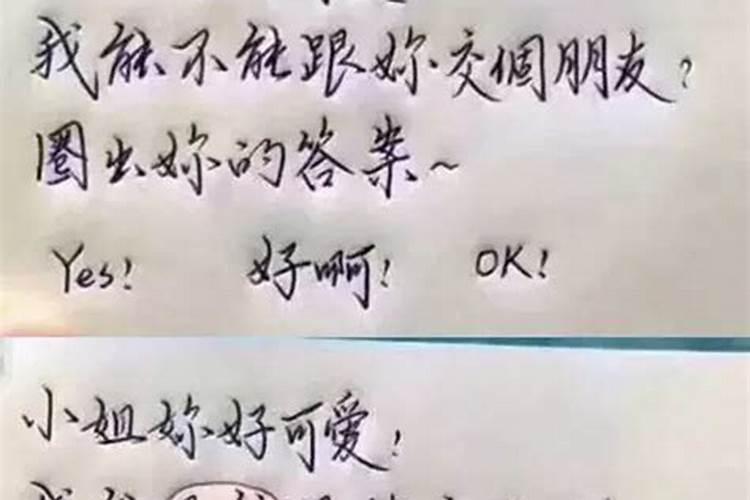 我能不能跟妳交個朋友？
圈出妳的答案~
Yes! 好啊! OK!
小姐妳好可愛!